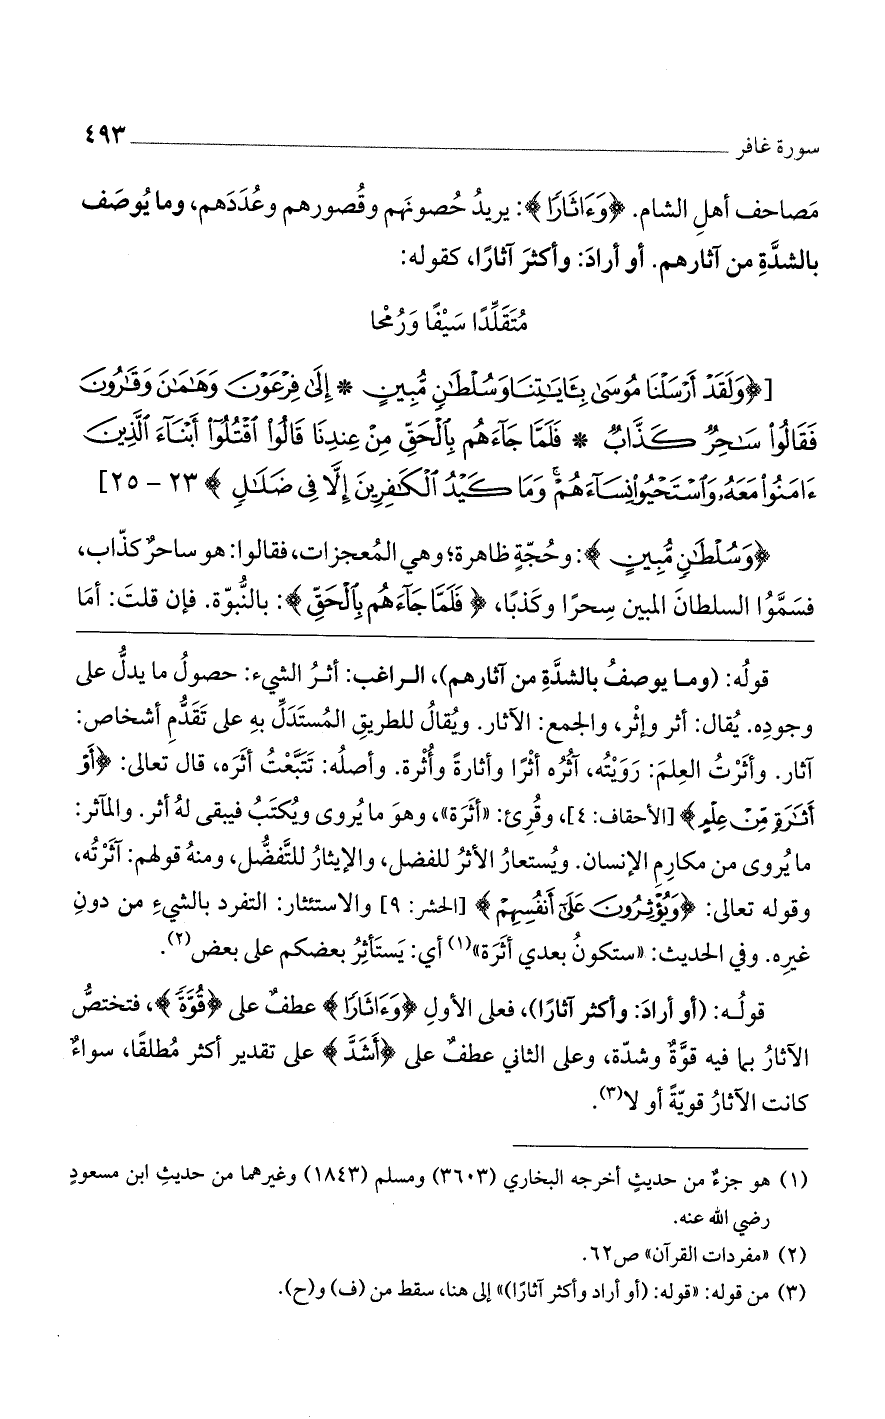 سورة غافر ٤٩٣
مَصاحف أهلِ الشام. ﴿وَءَاثَارًا﴾: يريدُ حُصونَهم وقُصورهم وعُدَدَهم، وما يُوصَف
بالشدَّةِ من آثارهم. أو أرادَ: وأكثرَ آثارًا، كقوله:
مُتَقَلِّدًا سَيْفًا وَرُمْحا
[﴿وَلَقَدْ أَرْسَلْنَا مُوسَىٰ بِـَٔايَـٰتِنَا وَسُلْطَـٰنٍ مُّبِينٍ * إِلَىٰ فِرْعَوْنَ وَهَـٰمَـٰنَ وَقَـٰرُونَ
فَقَالُوا۟ سَـٰحِرٌ كَذَّابٌ * فَلَمَّا جَآءَهُم بِٱلْحَقِّ مِنْ عِندِنَا قَالُوا۟ ٱقْتُلُوٓا۟ أَبْنَآءَ ٱلَّذِينَ
ءَامَنُوا۟ مَعَهُۥ وَٱسْتَحْيُوا۟ نِسَآءَهُمْ ۚ وَمَا كَيْدُ ٱلْكَـٰفِرِينَ إِلَّا فِى ضَلَـٰلٍ ﴾ ٢٣ - ٢٥]
﴿وَسُلْطَـٰنٍ مُّبِينٍ ﴾: وحُجّةٍ ظاهرة؛ وهي المُعجزات، فقالوا: هو ساحرٌ كذّاب،
فسَمَّوُا السلطانَ المبين سِحرًا وكَذبًا، ﴿ فَلَمَّا جَآءَهُم بِٱلْحَقِّ ﴾: بالنُّبوّة. فإن قلتَ: أمَا
قولُه: (وما يوصفُ بالشدَّةِ من آثارهم)، الراغب: أثرُ الشيء: حصولُ ما يدلُّ على
وجودِه. يُقال: أثر وإثْر، والجمع: الآثار. ويُقالُ للطريقِ المُستَدَلِّ بهِ على تَقَدُّمِ أشخاص:
آثار. وأثَرْتُ العِلمَ: رَوَيْتُه، آثُرُه أثْرًا وأثارةً وأُثْرة. وأصلُه: تَتَبَّعْتُ أثَرَه، قال تعالى: ﴿أَوْ
أَثَـٰرَةٍ مِّنْ عِلْمٍ﴾ [الأحقاف: ٤]، وقُرِئ: «أثَرَة»، وهوَ ما يُروى ويُكتَبُ فيبقى لهُ أثر. والمآثر:
ما يُروى من مكارِمِ الإنسان. ويُستعارُ الأثرُ للفضل، والإيثارُ للتَّفضُّل، ومنهُ قولهم: آثَرْتُه،
وقوله تعالى: ﴿وَيُؤْثِرُونَ عَلَىٰٓ أَنفُسِهِمْ ﴾ [الحشر: ٩] والاستئثار: التفرد بالشيءِ من دونِ
غيرِه. وفي الحديث: «ستكونُ بعدي أثَرَة»(١) أي: يَستَأثِرُ بعضكم على بعض(٢).
قولُه: (أو أرادَ: وأكثر آثارًا)، فعلى الأولِ ﴿وَءَاثَارًا﴾ عطفٌ على ﴿قُوَّةً ﴾، فتختصُّ
الآثارُ بما فيه قوَّةٌ وشدّة، وعلى الثاني عطفٌ على ﴿أَشَدَّ ﴾ على تقدير أكثر مُطلقًا، سواءٌ
كانت الآثارُ قويّةً أو لا(٣).
(١) هو جزءٌ من حديثٍ أخرجه البخاري (٣٦٠٣) ومسلم (١٨٤٣) وغيرهما من حديثِ ابن مسعودٍ
رضي الله عنه.
(٢) «مفردات القرآن» ص٦٢.
(٣) من قوله: «قوله: (أو أراد وأكثر آثارًا)» إلى هنا، سقط من (ف) و(ح).